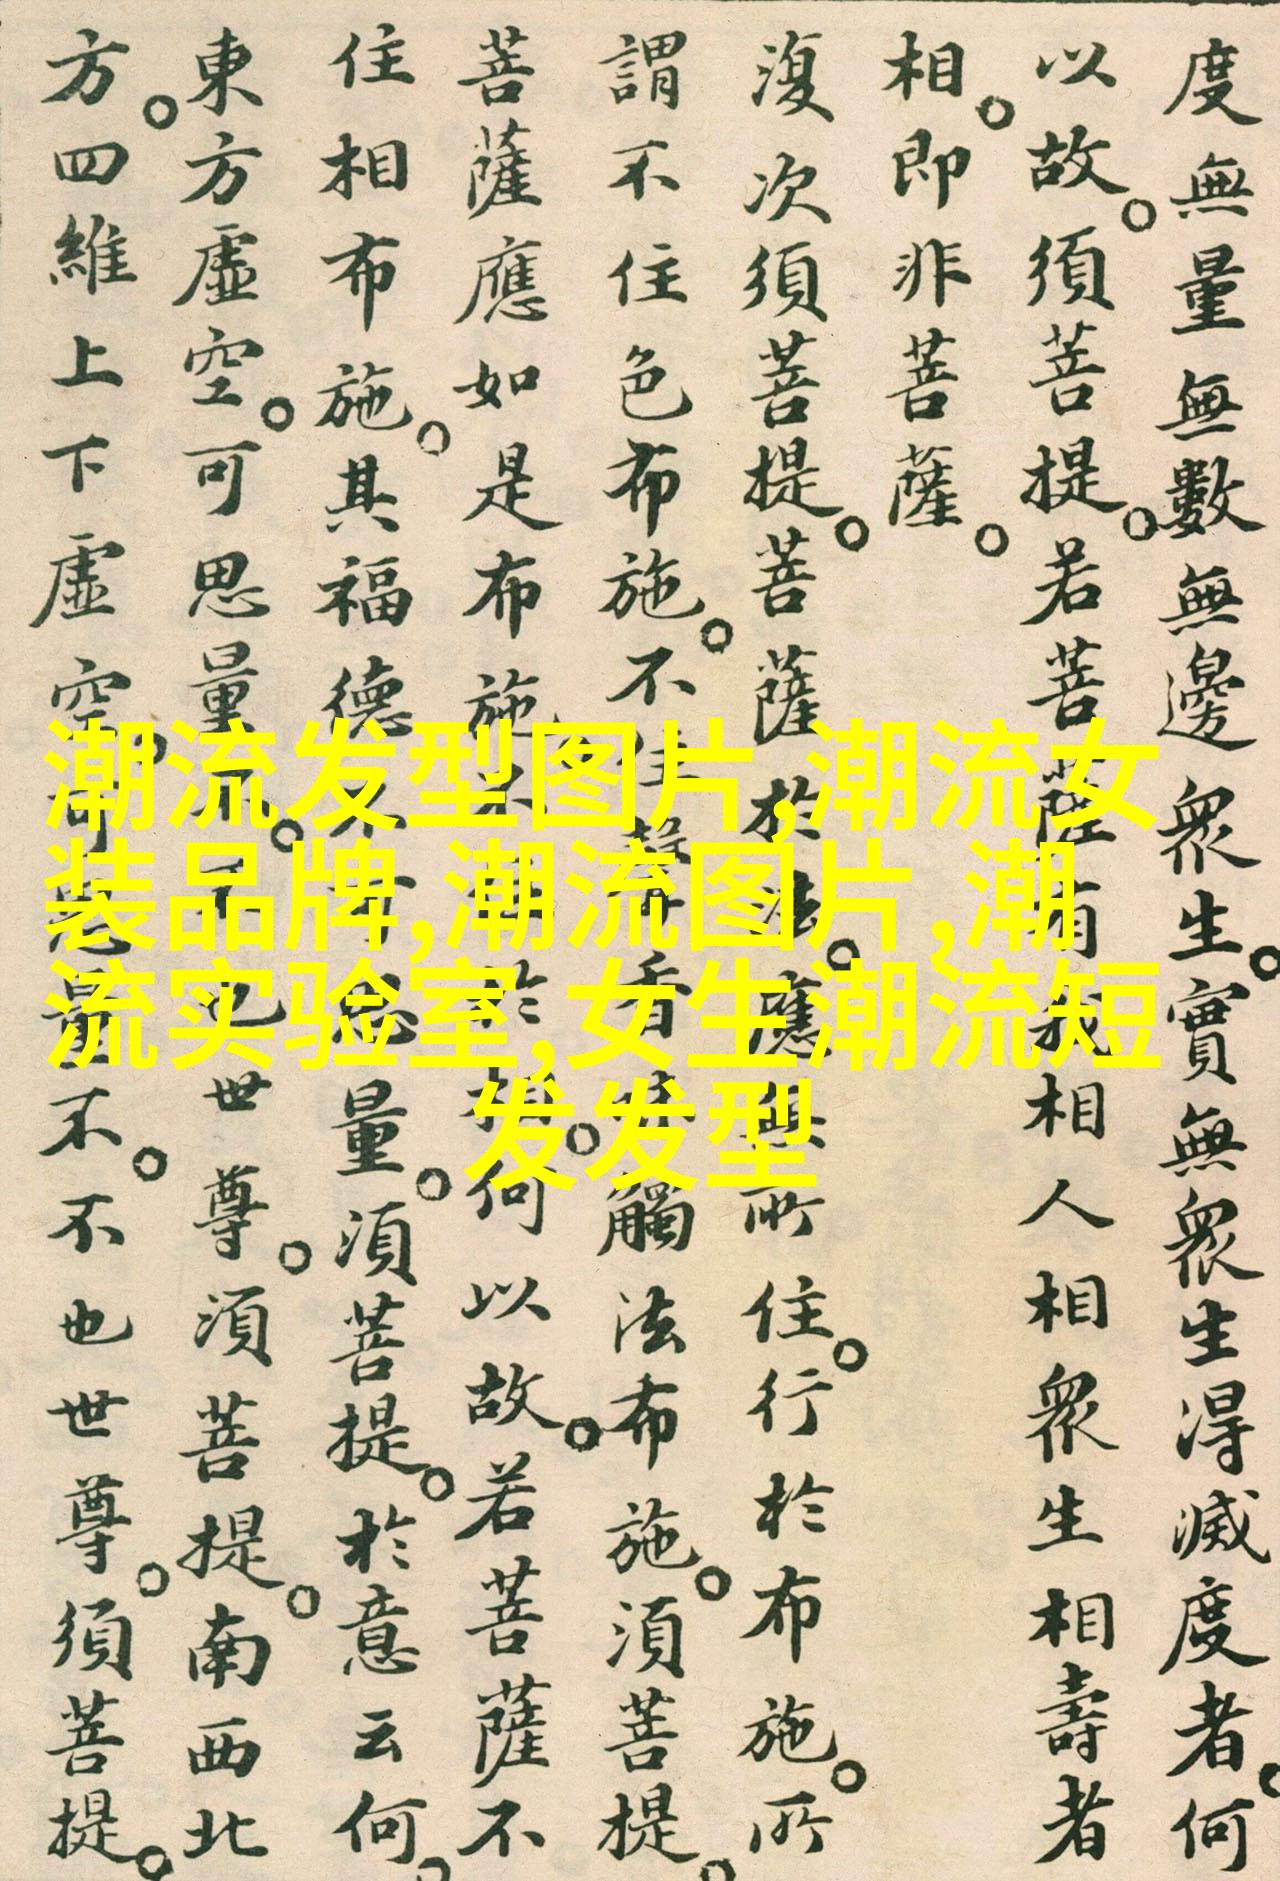 度無量無數無邊眾生。實無眾生得滅度者。何
以故。須菩提。若菩薩有我相人相眾生相壽者
相。即非菩薩。
復次須菩提。菩薩於法。應無所住。行於布施。所
謂不住色布施。不住聲香味觸法布施。須菩提。
菩薩應如是布施不住於相。何以故。若菩薩不
住相布施。其福德不可思量。須菩提。於意云何。
東方虛空。可思量不。不也世尊。須菩提。南西北
方。四維上下虛空。可思量不。不也世尊。須菩提。
潮流发型图片,潮流女
装品牌,潮流图片,潮
流实验室,女生潮流短
发发型